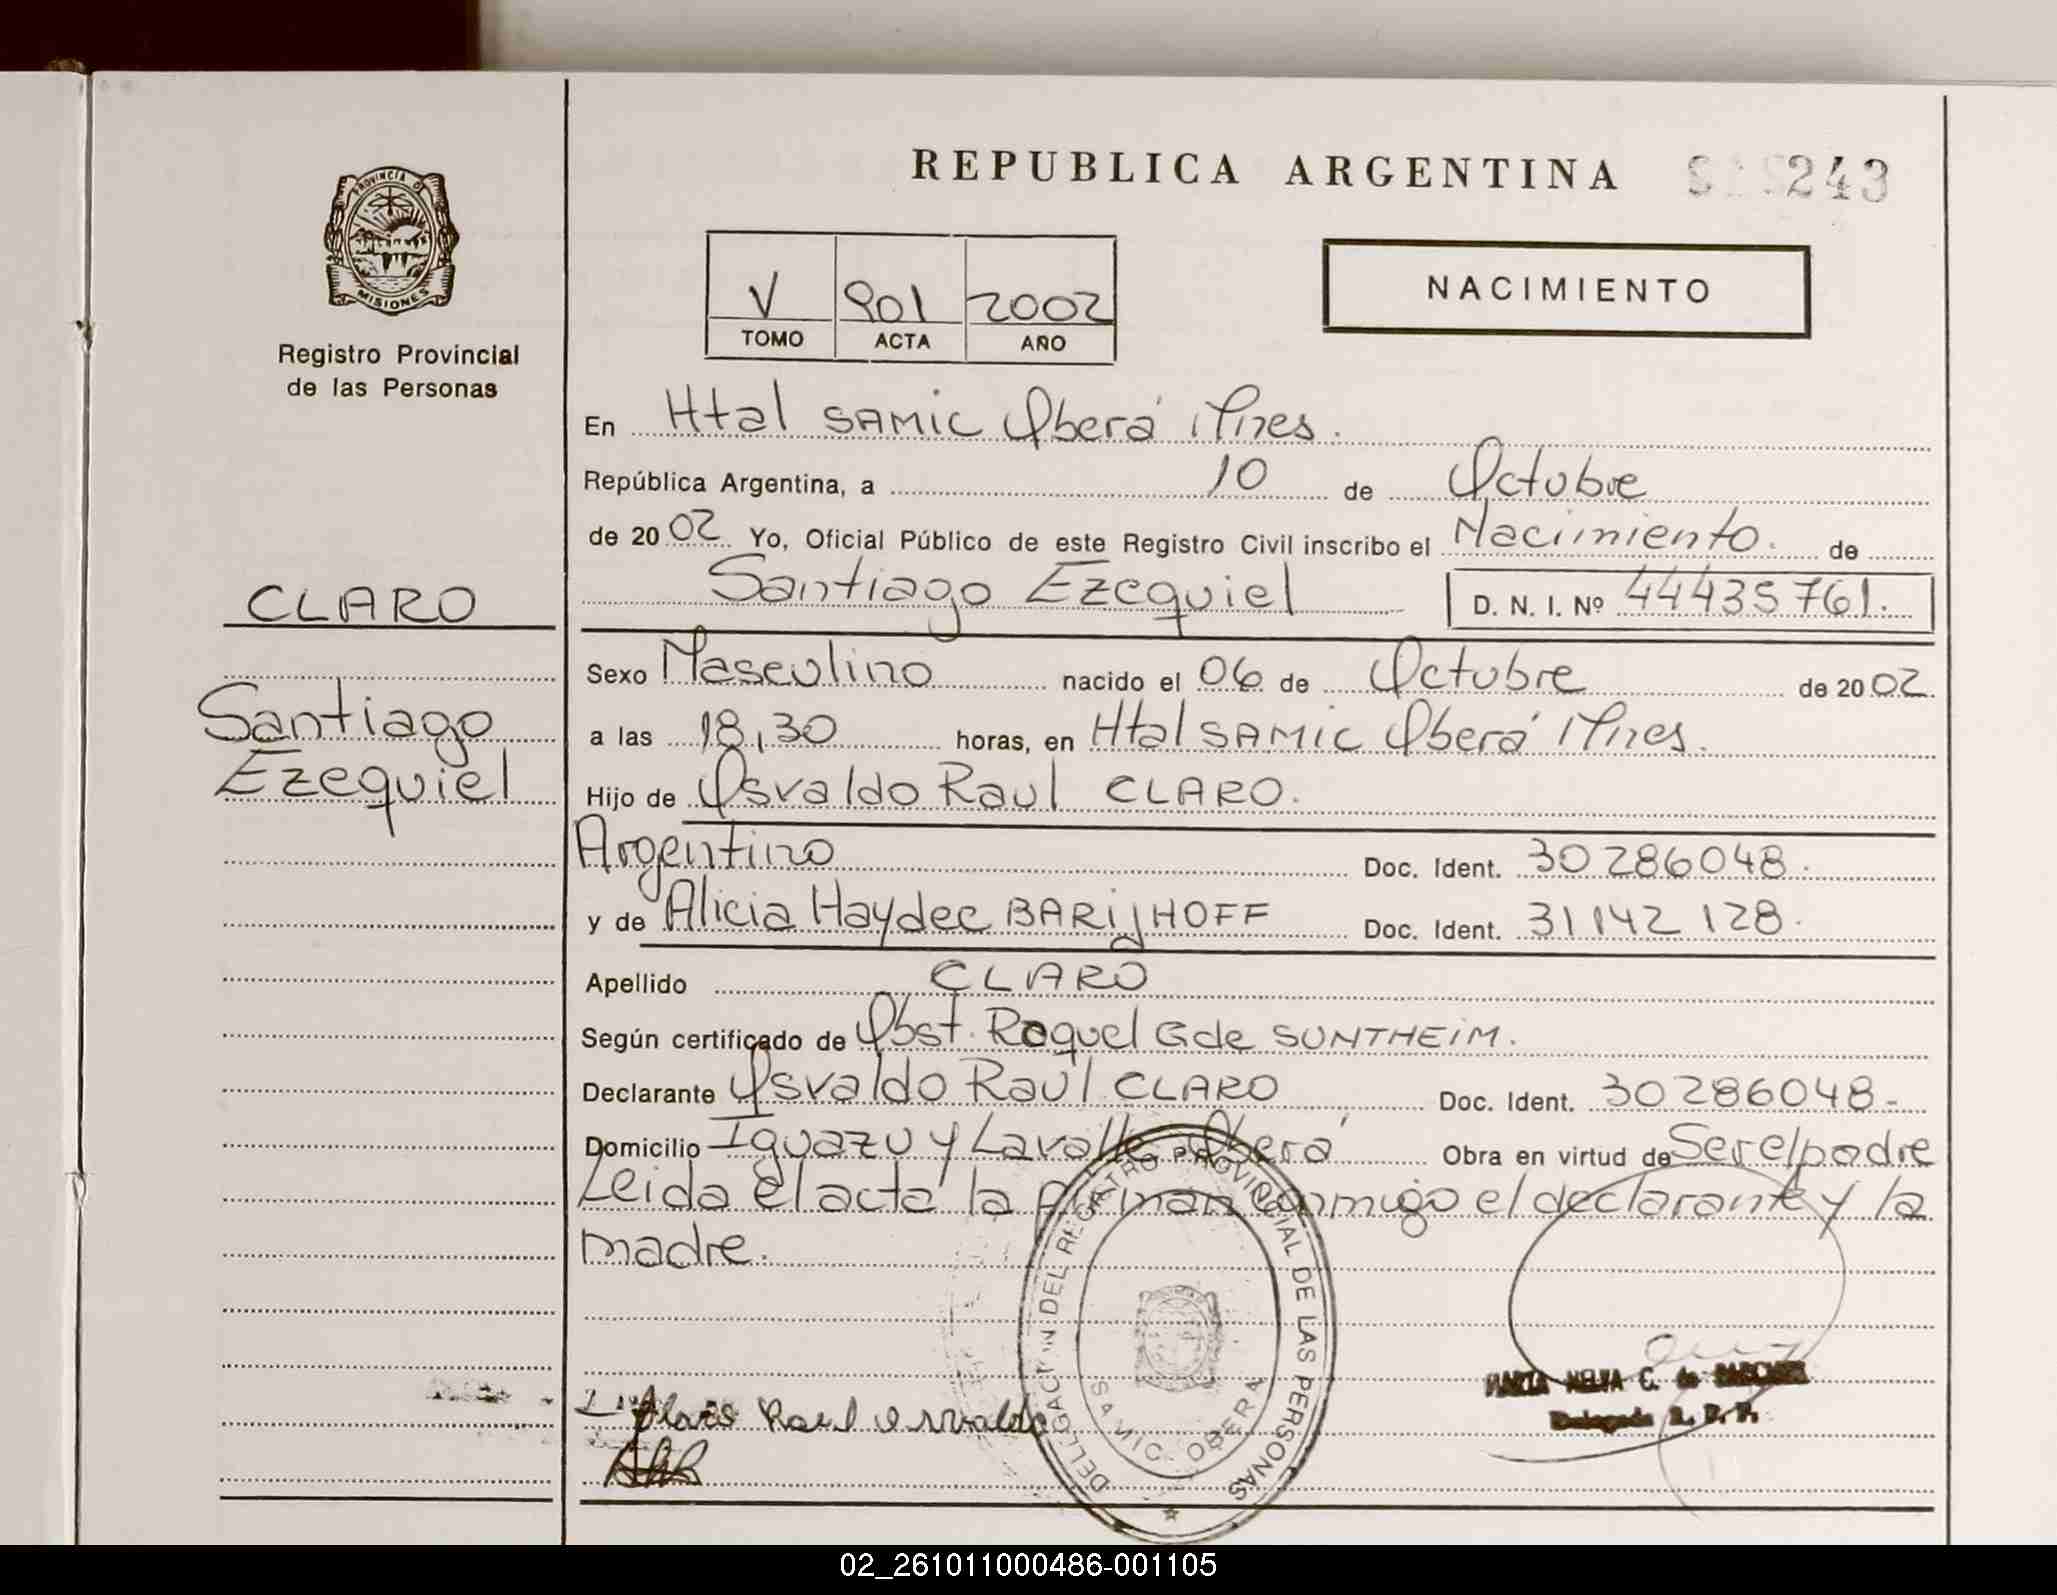 REPUBLICA ARGENTINA 243
PROVINCIA DE
MISIONES
Registro Provincial
de las Personas
V 901 2002
TOMO ACTA AÑO
NACIMIENTO
En Htal SAMIC Oberá Mnes.
República Argentina, a 10 de Octubre
de 2002 Yo, Oficial Público de este Registro Civil inscribo el Nacimiento. de
Santiago Ezequiel D. N. I. Nº 44435761.
CLARO
Santiago
Ezequiel
Sexo Masculino nacido el 06 de Octubre de 2002.
a las 18,30 horas, en Htal SAMIC Oberá Mnes.
Hijo de Osvaldo Raul CLARO.
Argentino Doc. Ident. 30286048.
y de Alicia Haydee BARIJHOFF Doc. Ident. 31142128.
Apellido CLARO
Según certificado de Obst. Raquel G de SUNTHEIM.
Declarante Osvaldo Raúl CLARO Doc. Ident. 30286048-
Domicilio Iguazu y Lavalle Oberá Obra en virtud de Ser el padre
Leida el acta la firman conmigo el declarante y la
madre.
DELEGACION DEL REGISTRO PROVINCIAL DE LAS PERSONAS
SAMIC OBERA
Raul Osvaldo
MARTA NELVA C. de
Delegada R. P. P.
02_261011000486-001105